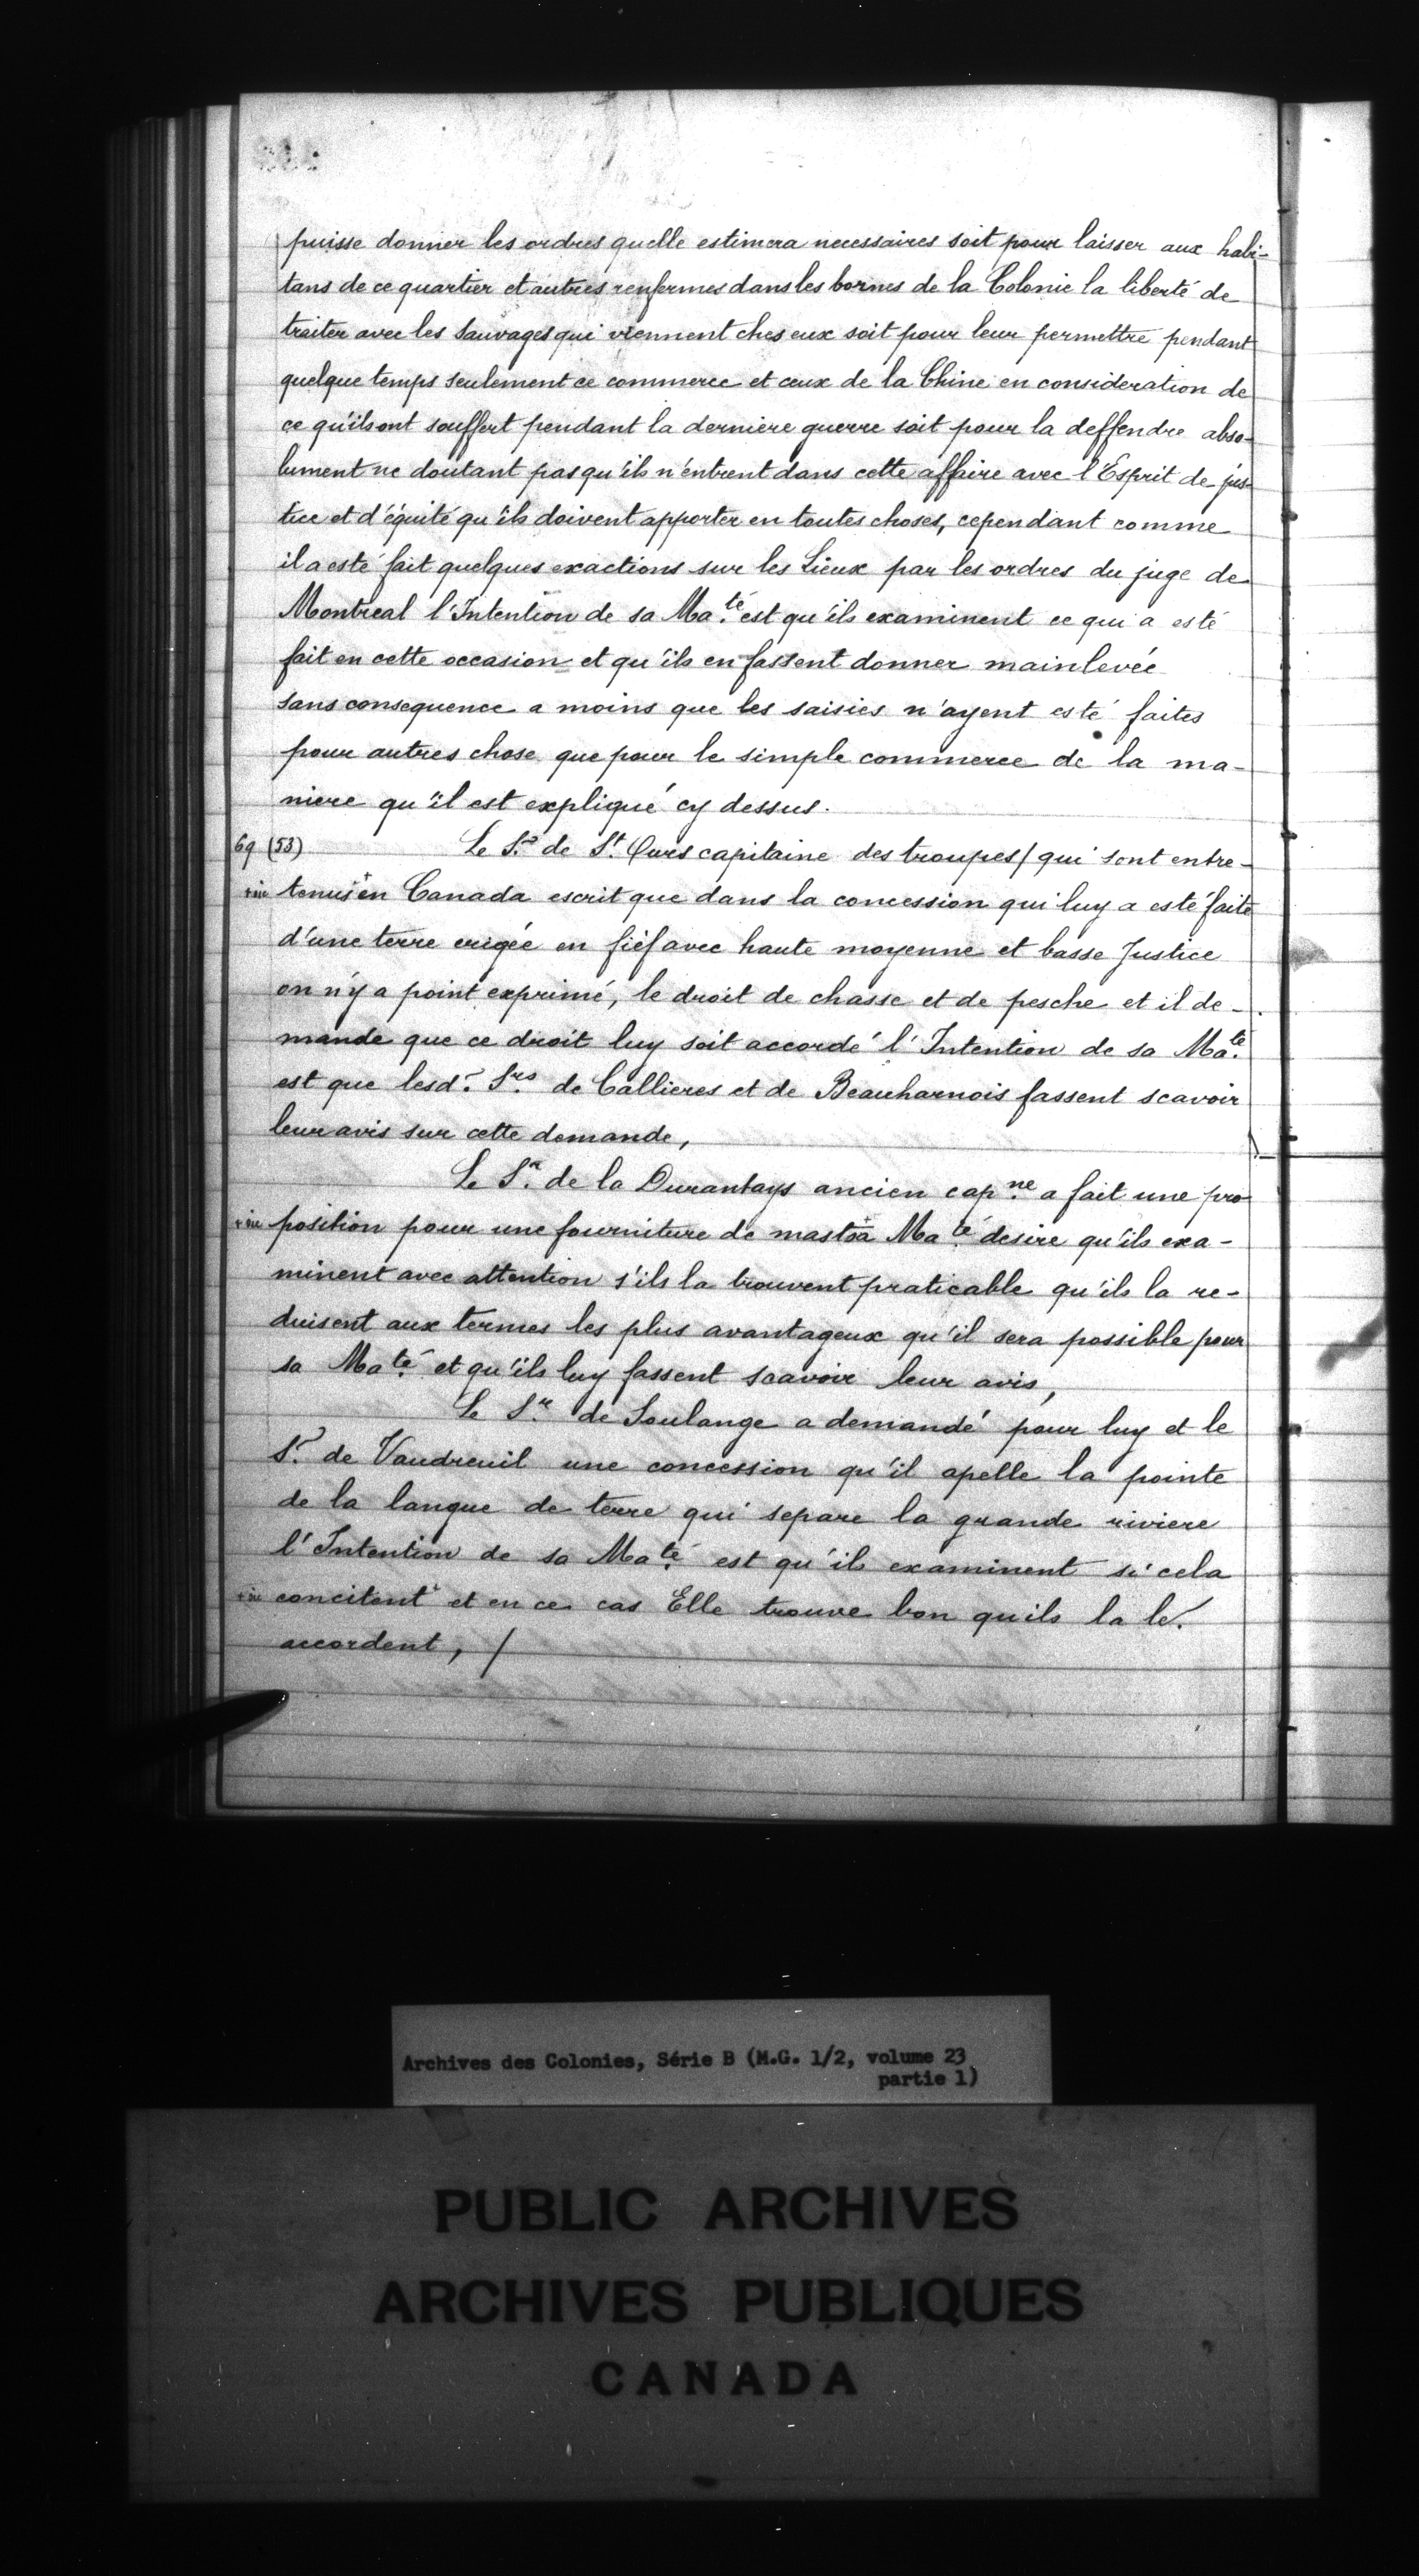 puisse donner les ordres quelle estimera necessaires soit pour laisser aux habi-
tans de ce quartier et autres renfermes dans les bornes de la Colonie la liberté de
traiter avec les Sauvages qui viennent ches eux soit pour leur permettre pendant
quelque temps seulement ce commerce et ceux de la Chine en consideration de
ce qu'ils ont souffert pendant la derniere guerre soit pour la deffendre abso-
lument ne doutant pas qu'ils n'entrent dans cette affaire avec l'Esprit de jus-
tice et d'équité qu'ils doivent apporter en toutes choses, cependant comme
il a esté fait quelques exactions sur les Lieux par les ordres du juge de
Montreal l'Intention de sa Ma.té est qu'ils examinent ce qui a esté
fait en cette occasion et qu'ils en fassent donner mainlevée
sans consequence a moins que les saisies n'ayent esté faites
pour autres chose que pour le simple commerce de la ma-
niere qu'il est expliqué cy dessus.
69 (53) Le S.r de S.t Ours capitaine des troupes / qui sont entre-
tenus+ en Canada escrit que dans la concession qui luy a esté faite
d'une terre erigée en fief avec haute moyenne et basse Justice
on n'y a point exprimé, le droit de chasse et de pesche et il de-
mande que ce droit luy soit accordé l'Intention de sa Ma.té
est que lesd. S.rs de Callieres et de Beauharnois fassent scavoir
leur avis sur cette demande,
Le S.r de la Durantays ancien cap.ne a fait une pro-
position pour une fourniture de mats+ sa Ma.té desire qu'ils exa-
minent avec attention s'ils la trouvent praticable qu'ils la re-
duisent aux termes les plus avantageux qu'il sera possible pour
sa Ma.té et qu'ils luy fassent scavoir leur avis,
Le S.r de Soulange a demandé pour luy et le
S.r de Vaudreuil une concession qu'il apelle la pointe
de la langue de terre qui separe la grande riviere
l'Intention de sa Ma.té est qu'ils examinent si cela
concitent+ et en ce cas Elle trouve bon quils la le.
accordent, /
Archives des Colonies, Série B (M.G. 1/2, volume 23
partie 1)
PUBLIC ARCHIVES
ARCHIVES PUBLIQUES
CANADA